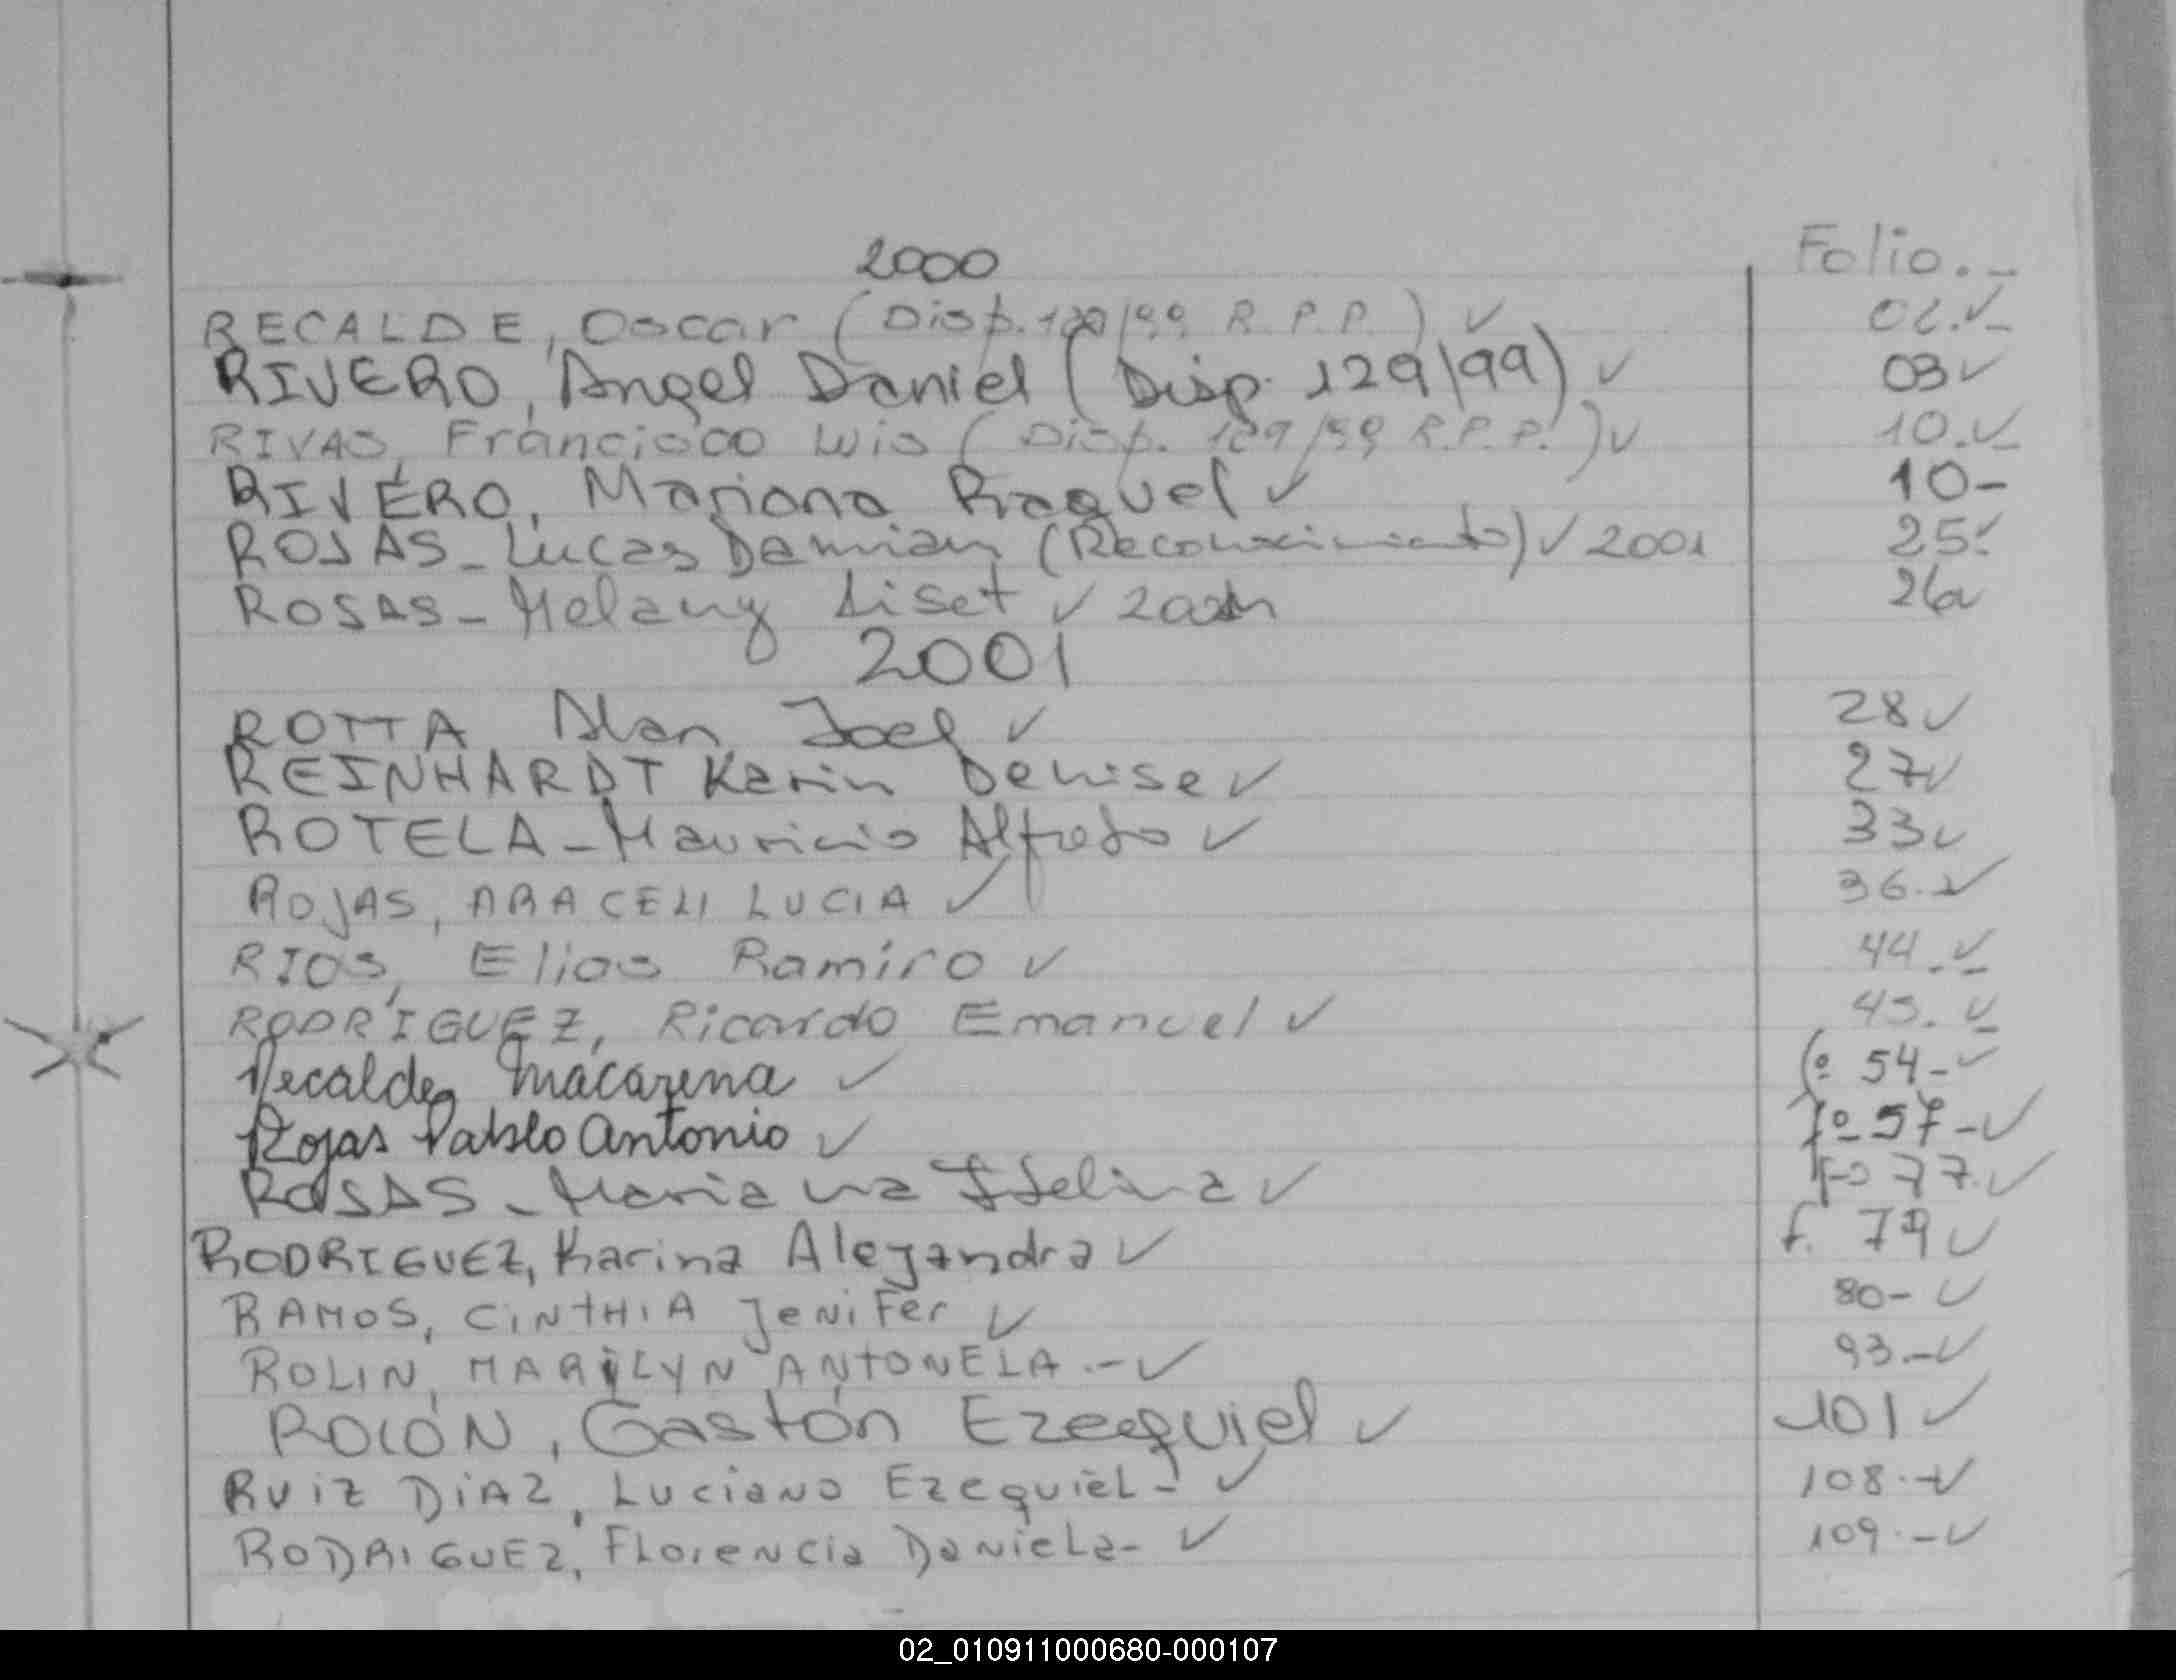 2000 Folio.-
RECALDE, Oscar (Disp. 129/99 R.P.P.) ✓ 02.✓-
RIVERO, Angel Daniel (Disp. 129/99) ✓ 03✓
RIVAS, Francisco Luis (Disp. 129/99 R.P.P.) ✓ 10.✓-
RIVERO, Mariana Raquel ✓ 10-
ROSAS-Lucas Damian (Reconocimiento) ✓ 2001 25✓
ROSAS-Melany Liset ✓ 26✓
2001
ROTTA Alan Joel ✓ 28✓
REINHARDT Karin Denise ✓ 27✓
ROTELA-Mauricio Alfredo ✓ 33✓
ROJAS, ARACELI LUCIA ✓ 36.✓
RIOS, Elias Ramiro ✓ 44.✓-
RODRIGUEZ, Ricardo Emanuel ✓ 45.✓-
Recalde, Macarena ✓ fº 54-✓
Rojas Pablo Antonio ✓ fº 57-✓
ROSAS-Mariana Idelina ✓ fº 77.✓
RODRIGUEZ, Karina Alejandra ✓ f. 79✓
RAMOS, CINTHIA JENIFER ✓ 80-✓
ROLIN, MARILYN ANTONELA.-✓ 93.-✓
ROLÓN, Gastón Ezequiel ✓ 101✓
RUIZ DIAZ, Luciano EZEQUIEL-✓ 108.-✓
RODRIGUEZ, Florencia Daniela-✓ 109.-✓
02_010911000680-000107